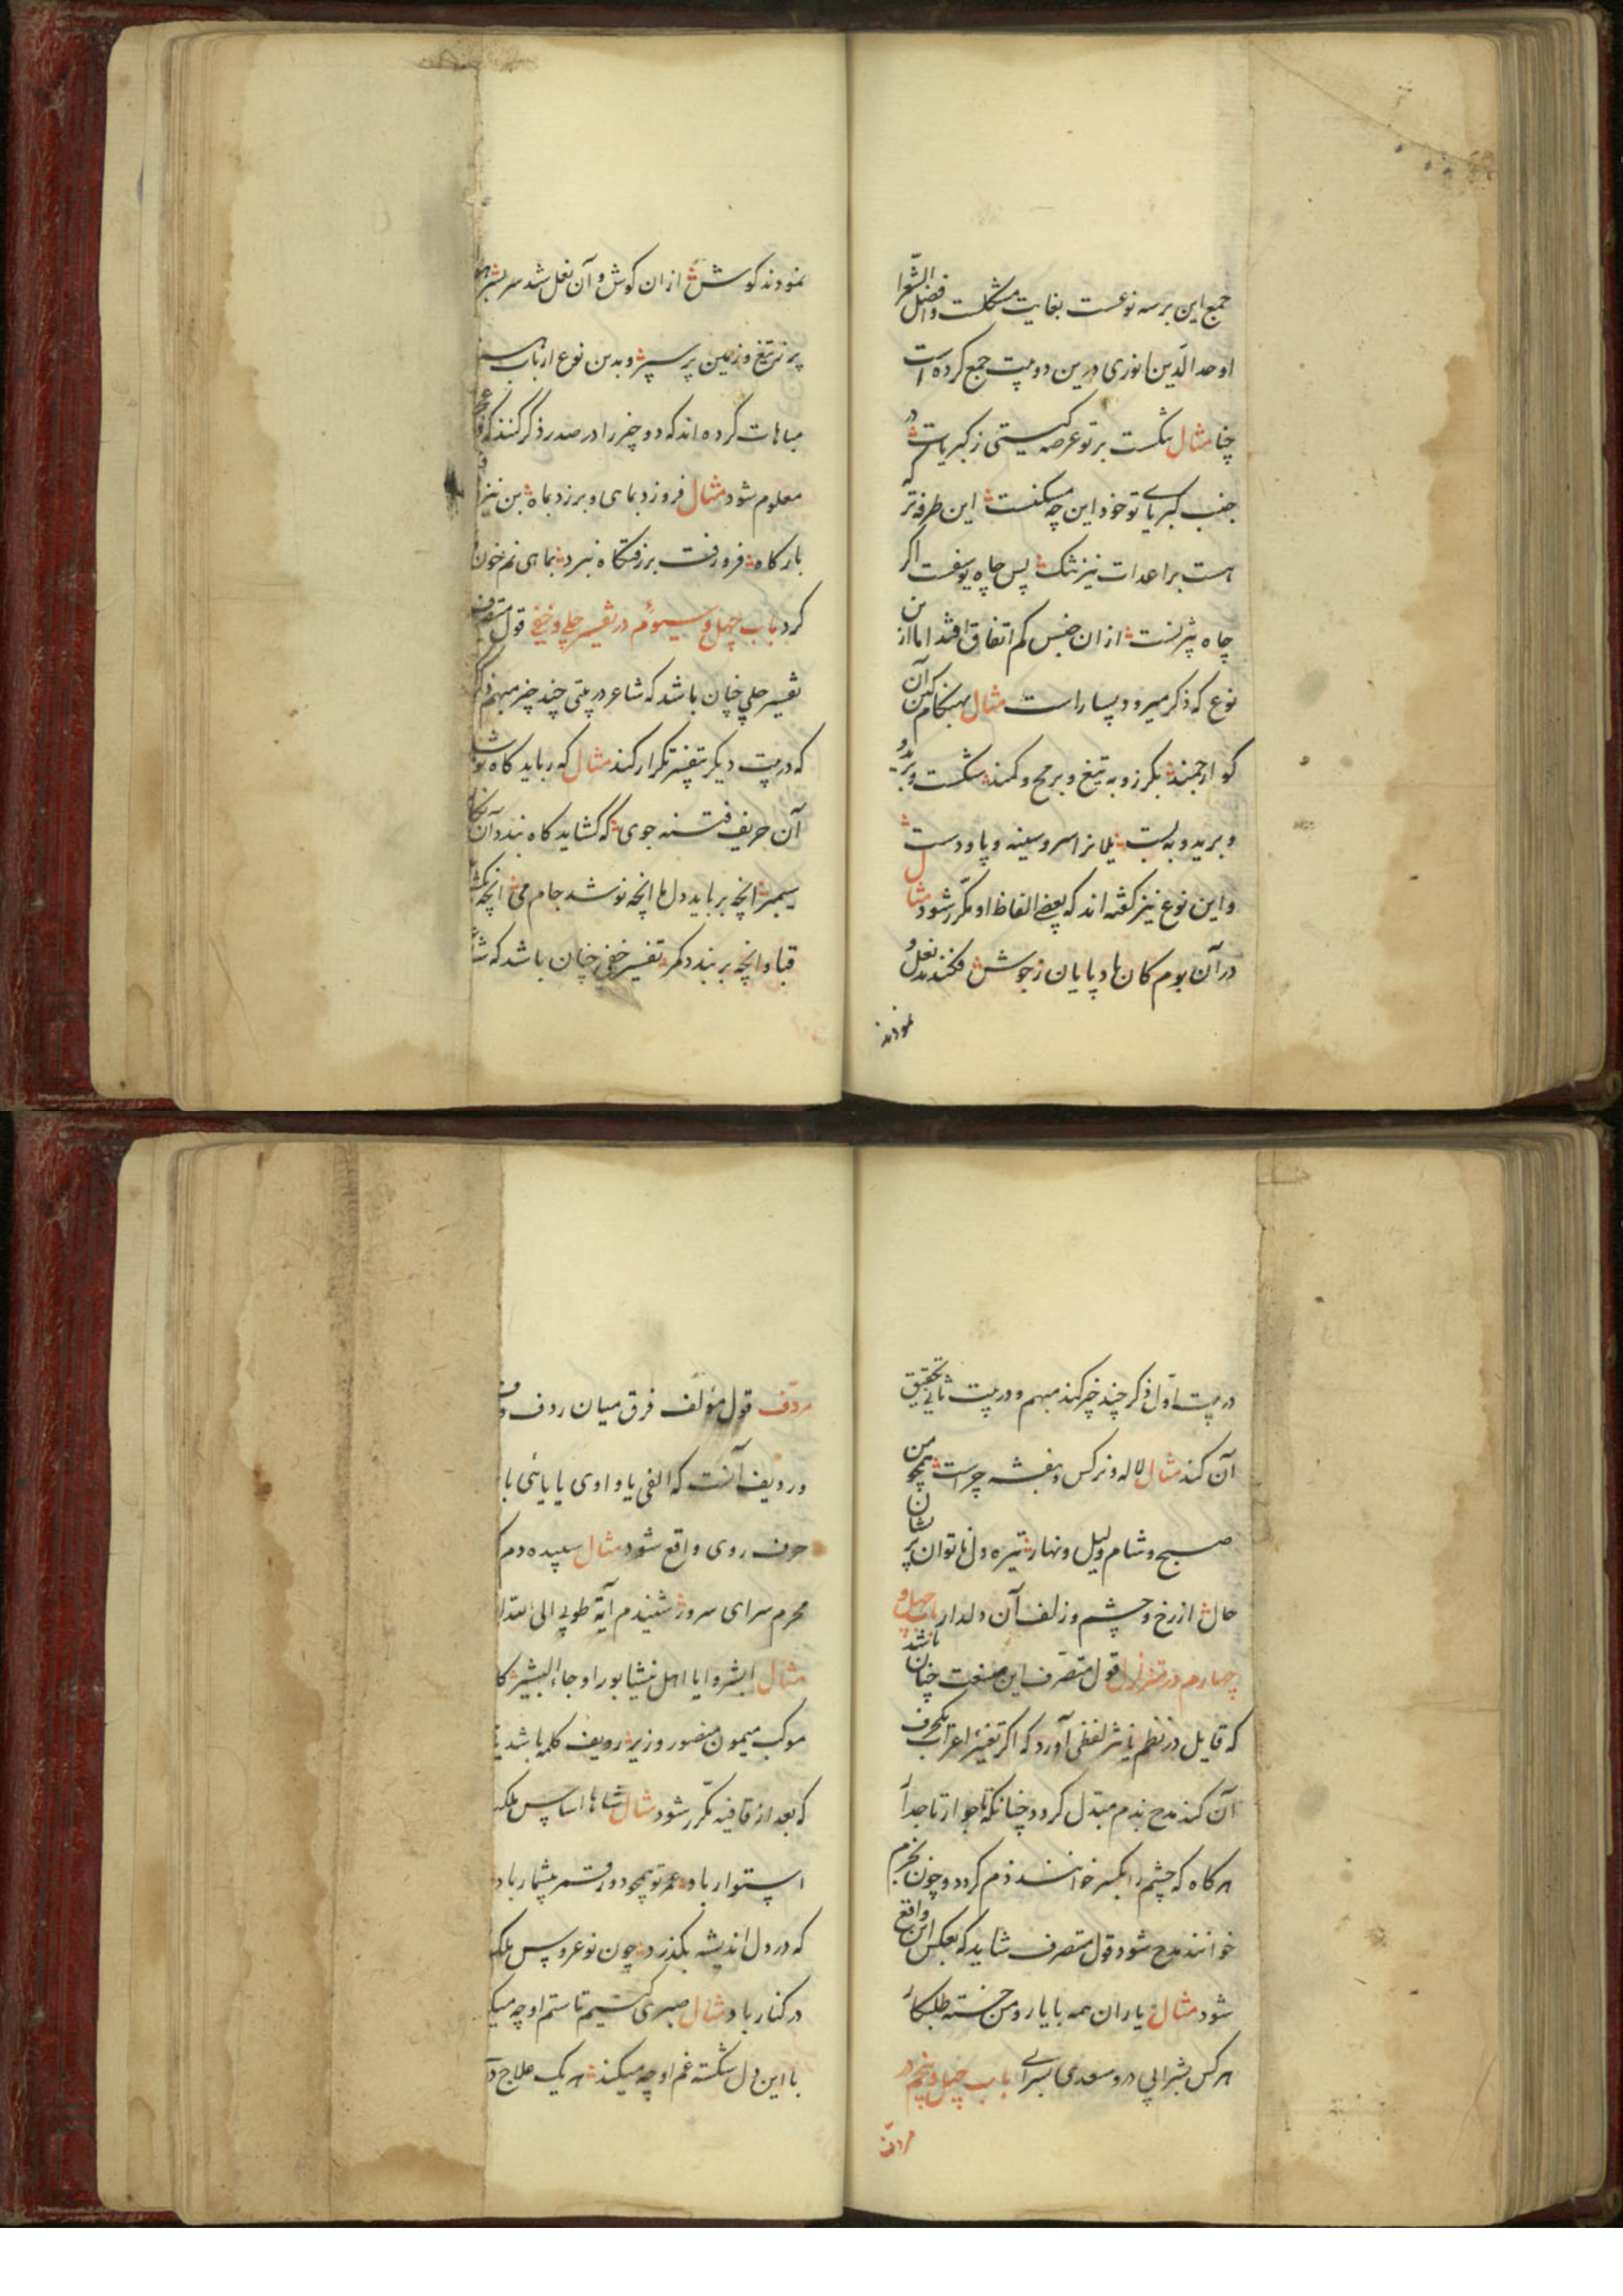 جمع این هر سه نوعست بغایت مشکلست و افضل الشعرا
اوحد الدین انوری درین دو بیت جمع کرده است
چنا مثال شکست بر تو عرصه گیتی ز کبریات در
جنب کبریای تو خود این چه مسکنت این طرفه تر که
هست بر اعدات نیز تنک پس چاه یوسفست اگر
چاه بیژنست ازان جنس کم اتفاق افتد اما از ین
نوع که ذکر میرود بسیار است مثال بهنکام کین آن
کو ارجمند بکرز و به تیغ و برمح و کمند شکست و برید و
و برید و به بست یلانرا سر و سینه و پا و دست
و این نوع نیز گفته اند که بعضی الفاظ او مکرر شود مثال
در آن بوم کان باد پایان ز جوش فکندند نعل و
نمودند
نمودند کوش ازان کوش و آن نعل شد سر بسر
پر ز تیغ و زمین پر سپر و بدین نوع ارباب
مباهات کرده اند که دو چیز را در صدر ذکر کنند که
معلوم شود مثال فروزد بماهی و برزد بماه بن نیزه
بارکاه فرو رفت و بر رفت کاه نبرد بماهی نم خون
کرد باب چهل و سیوم در تفسیر جلی و خفی قول متصرف
تفسیر جلی چنان باشد که شاعر در بیتی چند چیز مبهم ذکر
که در بیت دیگر بتفسیر تکرار کند مثال که رباید کاه نوشد
آن حریف فتنه جوی که کشاید کاه بندد آن نکار
سیمبر انچه برباید دل ما انچه نوشد جام می انچه بکشاید
قبا و انچه بر بندد کمر تفسیر خفی چنان باشد که
در بیت اول ذکر چند چیز کند مبهم و در بیت ثانی تحقیق
آن کند مثال لاله و نرکس و بنفشه چراست همچو من
صبح و شام و لیل و نهار تیره دل ناتوان پریشان
حال از رخ و چشم و زلف آن دلدار باب چهل و
چهارم در متزلزل قول متصرف این صنعت چنان باشد
که قایل در نظم یا نثر لفظی آورد که اگر تغییر اعراب یکحرف
آن کند مدح بذم مبدل کردد چنانکه تاجور از تا جدا
هر کاه که چشم را بکسر خوانند ذم کردد و چون بجزم
خوانند مدح شود قول متصرف شاید که بعکس این واقع
شود مثال یاران همه با یار و من خسته طلبکار
هر کس بسر آبی در و سعدی بسرابی باب چهل و پنجم در
مردف
مردف قول مؤلف فرق میان ردف و
و ردیف آنست که الفی یا واوی یا یائی با
حرف روی واقع شود مثال سپیده دم که
محرم سرای سرور شنیدم آیة طوبی الی
مثال ابشروا یا اهل نیشابور او جاء البشیر کا
موکب میمون منصور وزیر ردیف کلمه باشد یا
که بعد از قافیه مکرر شود مثال شاها اساس ملک
استوار باد عمر تو همچو دور قمر بیشمار باد
که در دل اندیشه بگذرد چون نوعروس ملک
در کنار باد مثال صبری کنیم تا ستم او چه میک
با این دل شکسته غم او چه میکند هر یک علاج